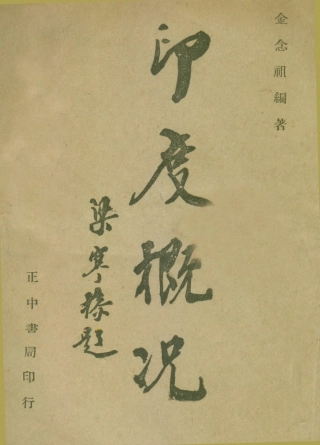 金念祖編著
印度概况
梁寒操題
正中書局印行